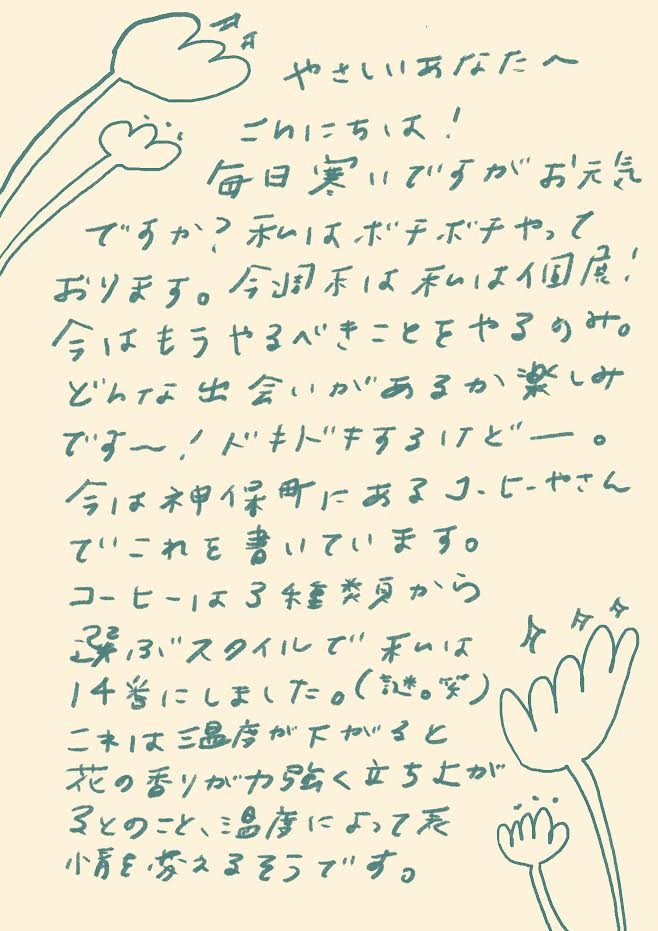 やさしいあなたへ
こんにちは!
毎日寒いですがお元気
ですか?私はボチボチやって
おります。今週末は私は個展!
今はもうやるべきことをやるのみ。
どんな出会いがあるか楽しみ
です〜!ドキドキするけどー。
今は神保町にあるコーヒーやさん
でこれを書いています。
コーヒーは3種類から
選ぶスタイルで私は
14番にしました。(謎。笑)
これは温度が下がると
花の香りが力強く立ち上が
るとのこと、温度によって表
情を変えるそうです。